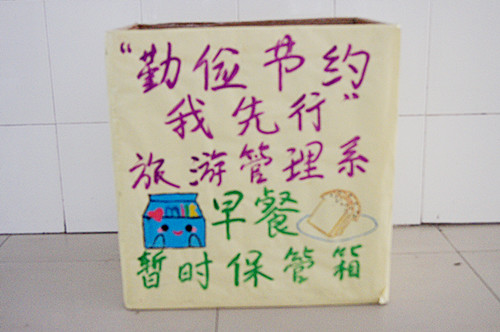 “勤俭节约
我先行”
旅游管理系
早餐
暂时保管箱